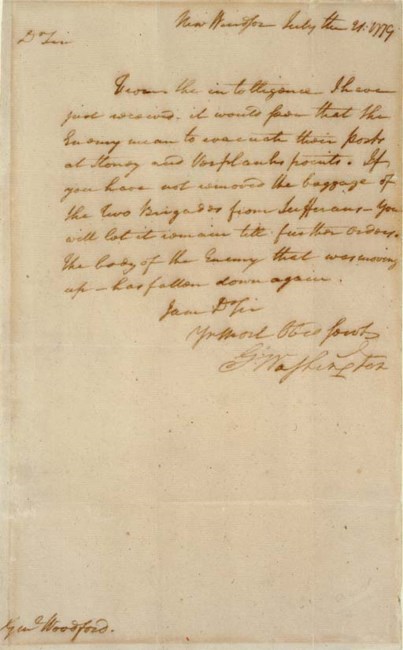 New Windsor July the 21: 1779
Dr Sir
From the intelligence I have
just received. it would seem that the
Enemy mean to evacuate their Posts
at Stoney and Verplanks points. If
you have not removed the baggage of
the two Brigades from Sufferans - You
will let it remain till further orders.
The body of the Enemy that was moving
up - has fallen down again.
I am Dr Sir
Yr most Obed Servt
Go Washington
Genl Woodford.